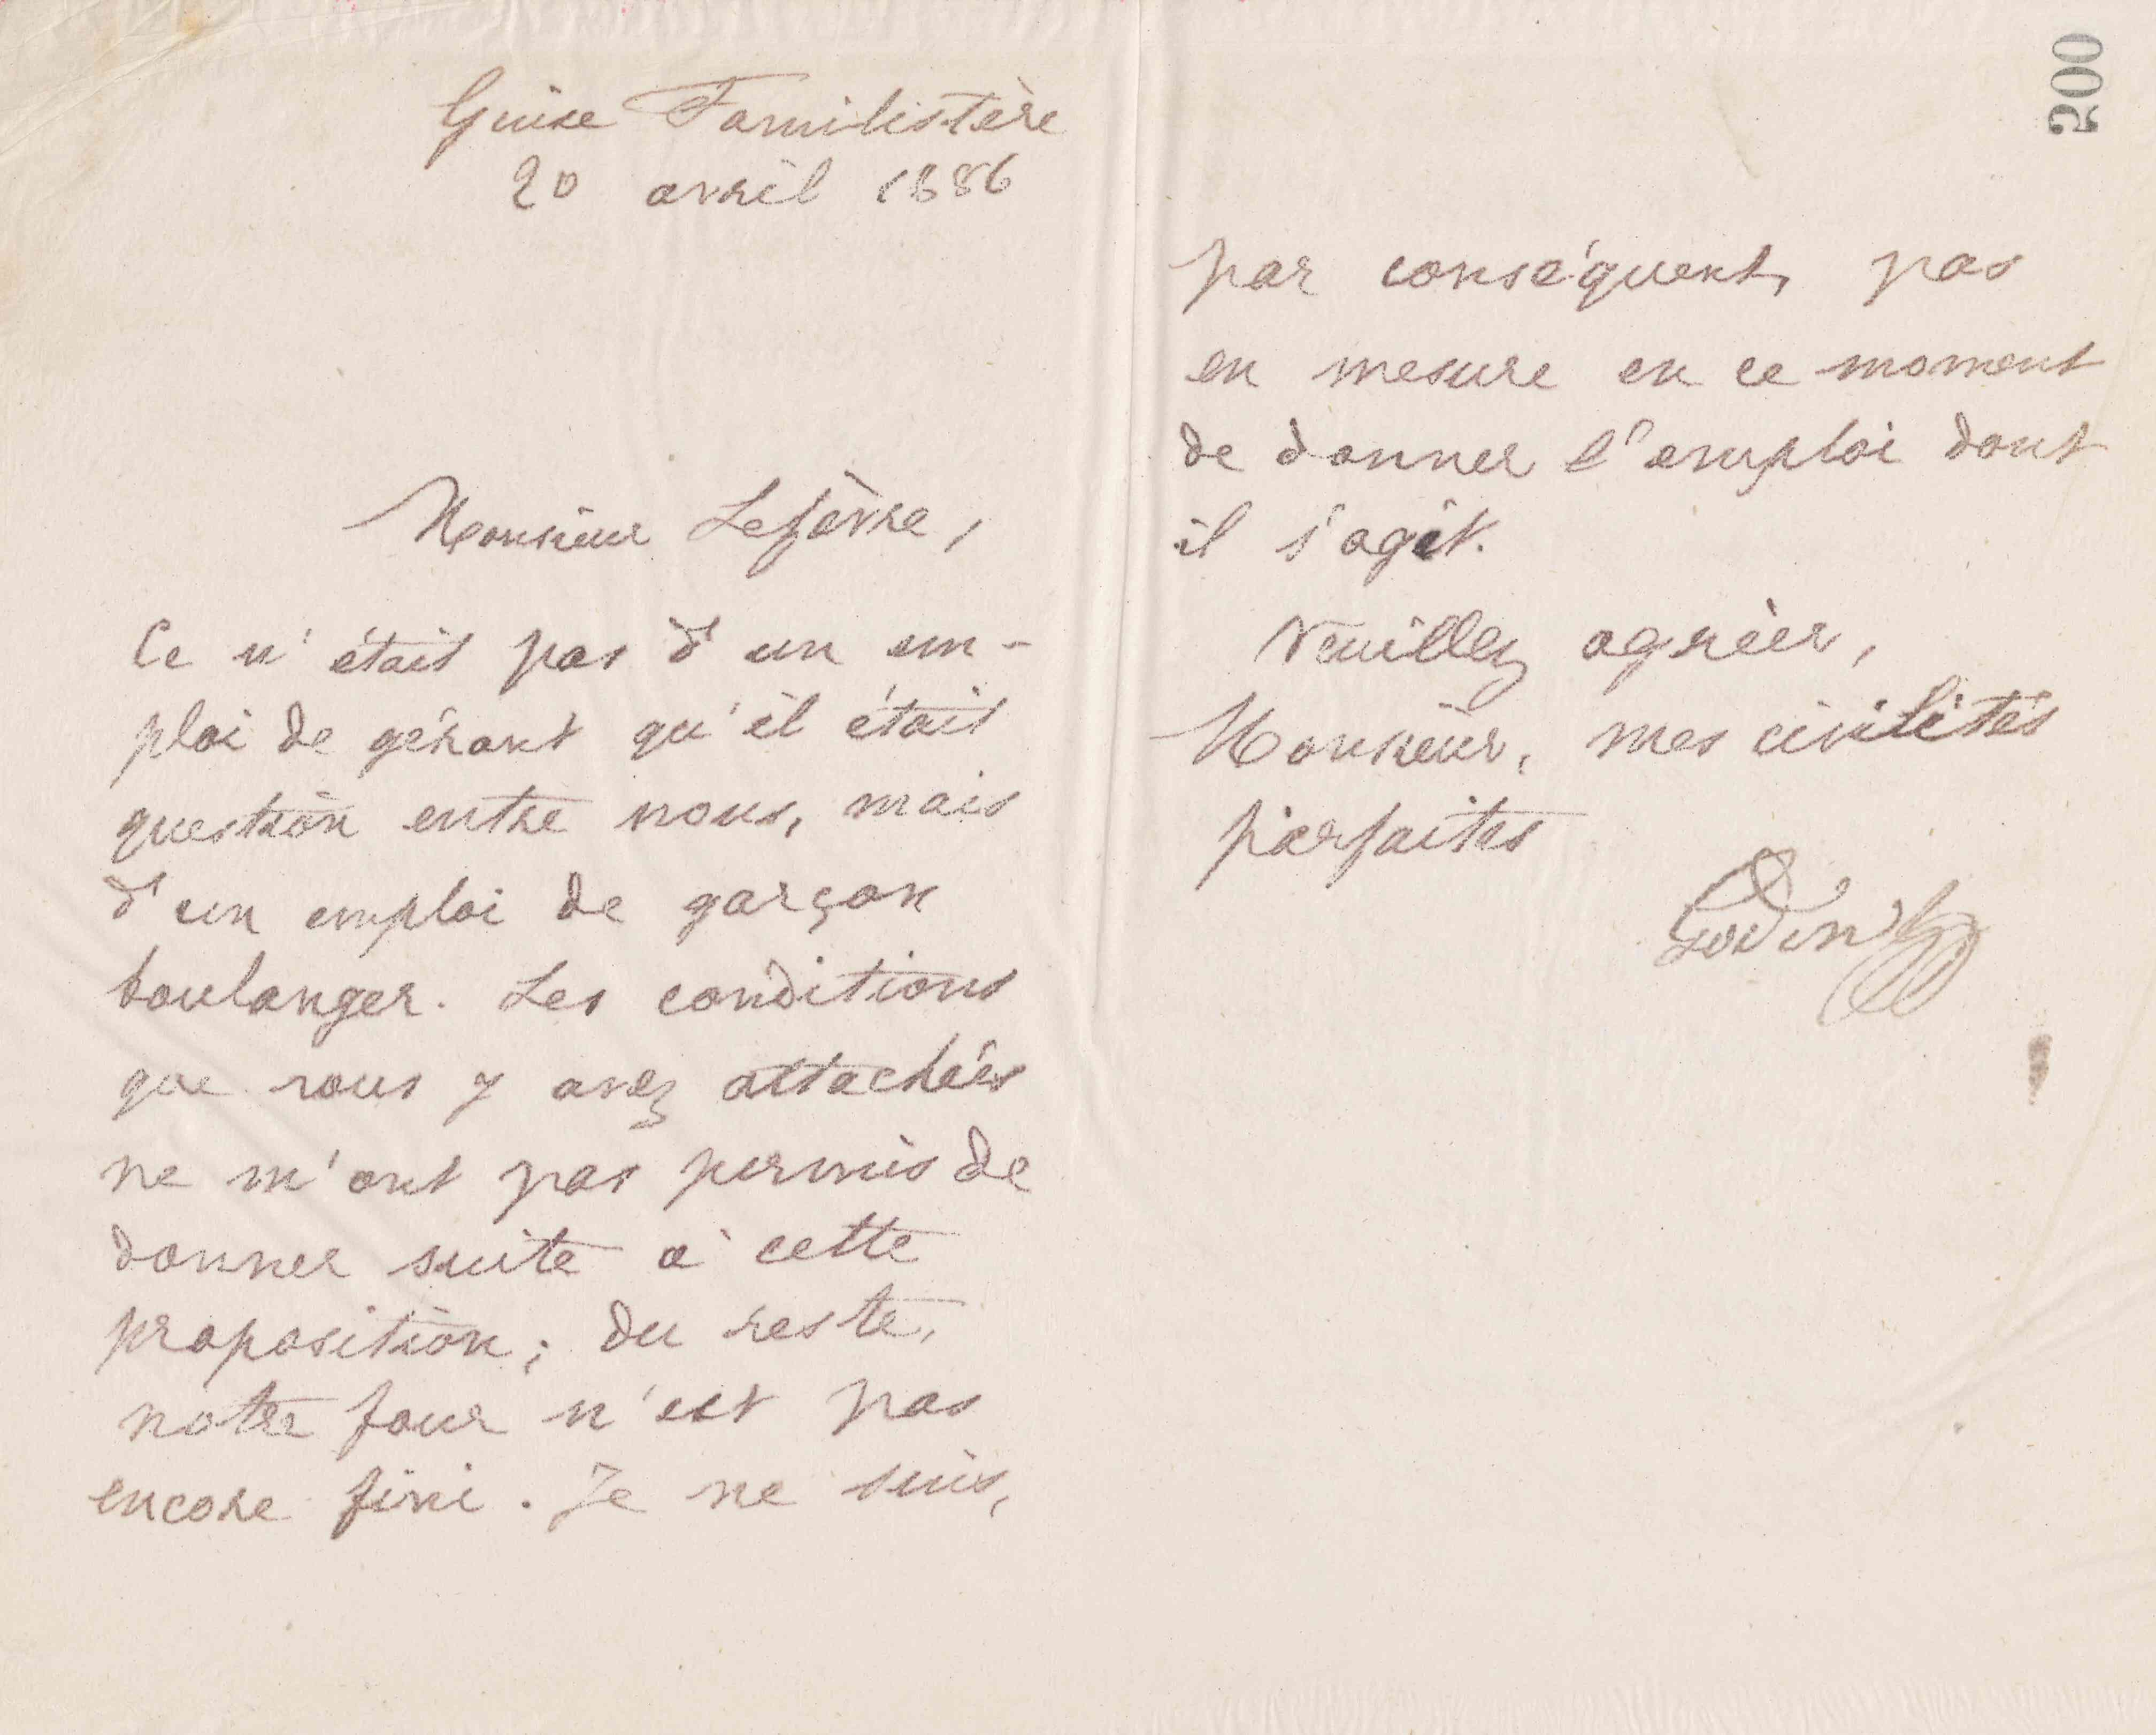 Guise Familistère
20 avril 1886
Monsieur Lefèvre,
Ce n'était pas d'un em-
ploi de gérant qu'il était
question entre nous, mais
d'un emploi de garçon
boulanger. Les conditions
que vous y avez attachées
ne m'ont pas permis de
donner suite à cette
proposition; du reste,
notre four n'est pas
encore fini. Je ne suis,
500
par conséquent, pas
en mesure en ce moment
de donner l'emploi dont
il s'agit.
Veuillez agréer,
Monsieur, mes civilités
parfaites
Godin